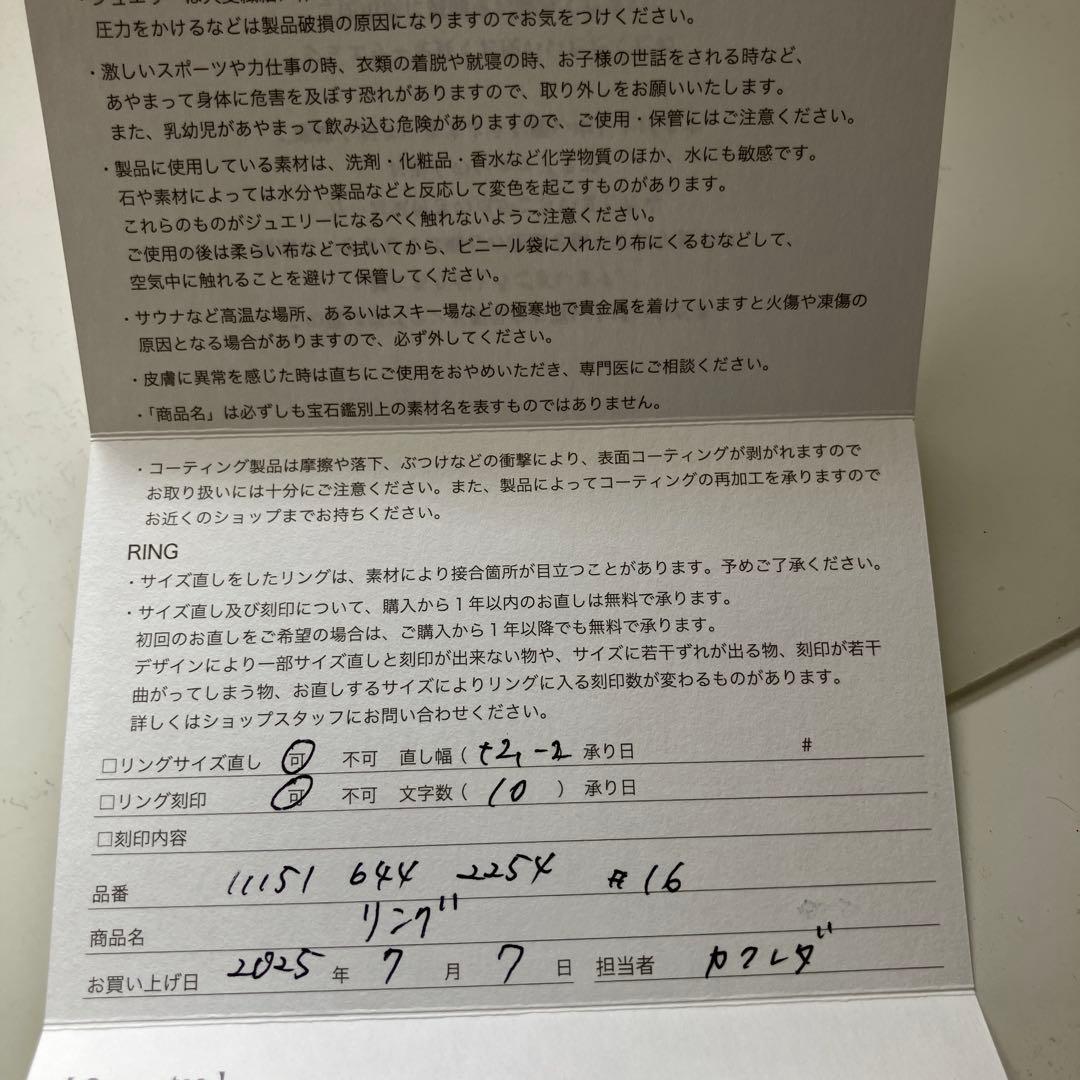 圧力をかけるなどは製品破損の原因になりますのでお気をつけください。
・激しいスポーツや力仕事の時、衣類の着脱や就寝の時、お子様の世話をされる時など、
あやまって身体に危害を及ぼす恐れがありますので、取り外しをお願いいたします。
また、乳幼児があやまって飲み込む危険がありますので、ご使用・保管にはご注意ください。
・製品に使用している素材は、洗剤・化粧品・香水など化学物質のほか、水にも敏感です。
石や素材によっては水分や薬品などと反応して変色を起こすものがあります。
これらのものがジュエリーになるべく触れないようご注意ください。
ご使用の後は柔らい布などで拭いてから、ビニール袋に入れたり布にくるむなどして、
空気中に触れることを避けて保管してください。
・サウナなど高温な場所、あるいはスキー場などの極寒地で貴金属を着けていますと火傷や凍傷の
原因となる場合がありますので、必ず外してください。
・皮膚に異常を感じた時は直ちにご使用をおやめいただき、専門医にご相談ください。
・「商品名」は必ずしも宝石鑑別上の素材名を表すものではありません。
・コーティング製品は摩擦や落下、ぶつけなどの衝撃により、表面コーティングが剥がれますので
お取り扱いには十分にご注意ください。また、製品によってコーティングの再加工を承りますので
お近くのショップまでお持ちください。
RING
・サイズ直しをしたリングは、素材により接合箇所が目立つことがあります。予めご了承ください。
・サイズ直し及び刻印について、購入から1年以内のお直しは無料で承ります。
初回のお直しをご希望の場合は、ご購入から1年以降でも無料で承ります。
デザインにより一部サイズ直しと刻印が出来ない物や、サイズに若干ずれが出る物、刻印が若干
曲がってしまう物、お直しするサイズによりリングに入る刻印数が変わるものがあります。
詳しくはショップスタッフにお問い合わせください。
□リングサイズ直し 可 不可 直し幅( +2, -2 承り日 #
□リング刻印 可 不可 文字数( 10 ) 承り日
□刻印内容
品番 11151 644 2254 #16
商品名 リング
お買い上げ日 2025 年 7 月 7 日 担当者